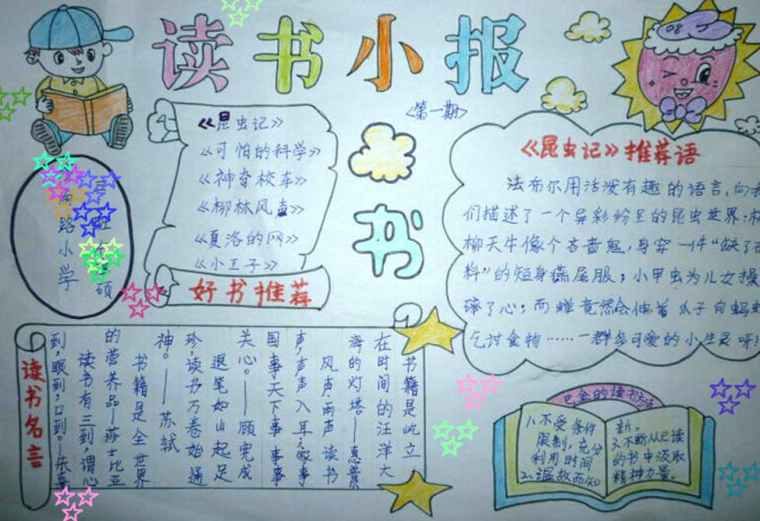 读书小报
<第一期>
《昆虫记》
《可怕的科学》
《神奇校车》
《柳林风声》
《夏洛的网》
《小王子》
好书推荐
书
路小学
《昆虫记》推荐语
法布尔用活泼有趣的语言,向
们描述了一个异彩纷呈的昆虫世界:
柳天牛像个吝啬鬼,身穿一件"缺了
料"的短身燕尾服;小甲虫为儿女操
碎了心;而蝉竟然会伸着爪子向蚂
乞讨食物……一群多可爱的小生灵呀!
读书名言
书籍是屹立
在时间的汪洋大
海的灯塔——惠普
风声,雨声,读书
声,声声入耳;事
国事天下事事事
关心。——顾完成
退笔如山起足
珍,读书万卷始通
神。——苏轼
书籍是全世界
的营养品——莎士比亚
读书有三到,谓心
到,眼到,口到。——朱
巴金的读书
1、不受条件
限制,充分
利用时间
2、温故而知
新。
3、不断从已读
的书中汲取
精神力量。